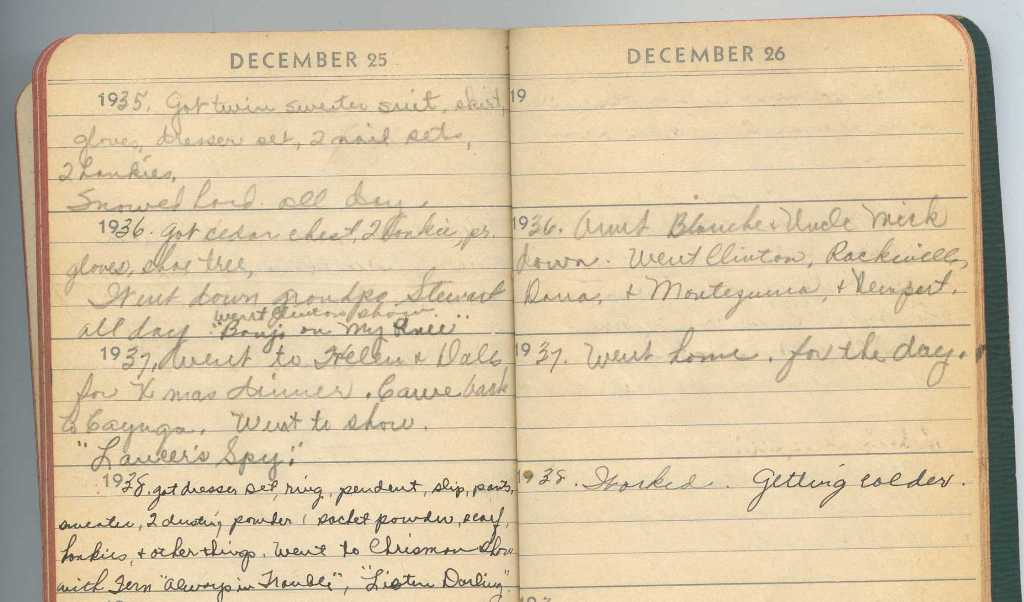 DECEMBER 25
1935. Got twin sweater suit, skirt,
gloves, dresser set, 2 nail sets,
2 hankies,
Snowed hard all day.
1936. Got cedar chest, 2 hankie, pr.
gloves, shoe tree,
Went down grandpa Stewart
all day. Went Clinton show.
"Banjo on My Knee"
1937. Went to Helen & Dale
for Xmas dinner. Came back
to Cayuga. Went to show.
"Lancer's Spy."
1938. got dresser set, ring, pendent, slip, pants,
sweater, 2 dusting powder, 1 sachet powder, scarf,
hankies, & other things. Went to Chrisman show
with Fern "Always in Trouble", "Listen Darling"
DECEMBER 26
19
1936. Aunt Blanche & Uncle Mick
down. Went Clinton, Rockville,
Dana, & Montezuma, & Newport.
1937. Went home. for the day.
1938. Worked. Getting colder.